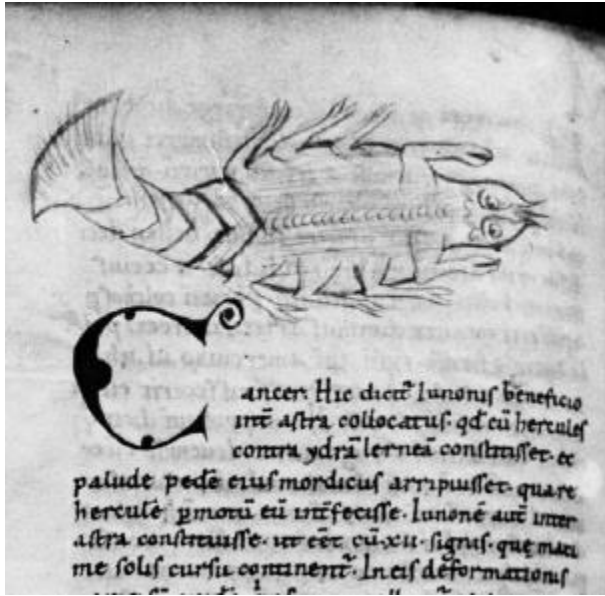 Cancer. Hic dictͬ Iunonis b̄eneficio
int̄ astra collocatus. qđ cū hercules
contra ydrā lerneā constitisset. ec
palude pedē eius mordicus arripuisset. quare
herculē p̄motū eū int̄fecisse. Iunonē aut̄ inter
astra constituisse. ut eēt cū .xii. signis. quę maxi
me solis cursu continent͛. In eis deformationis